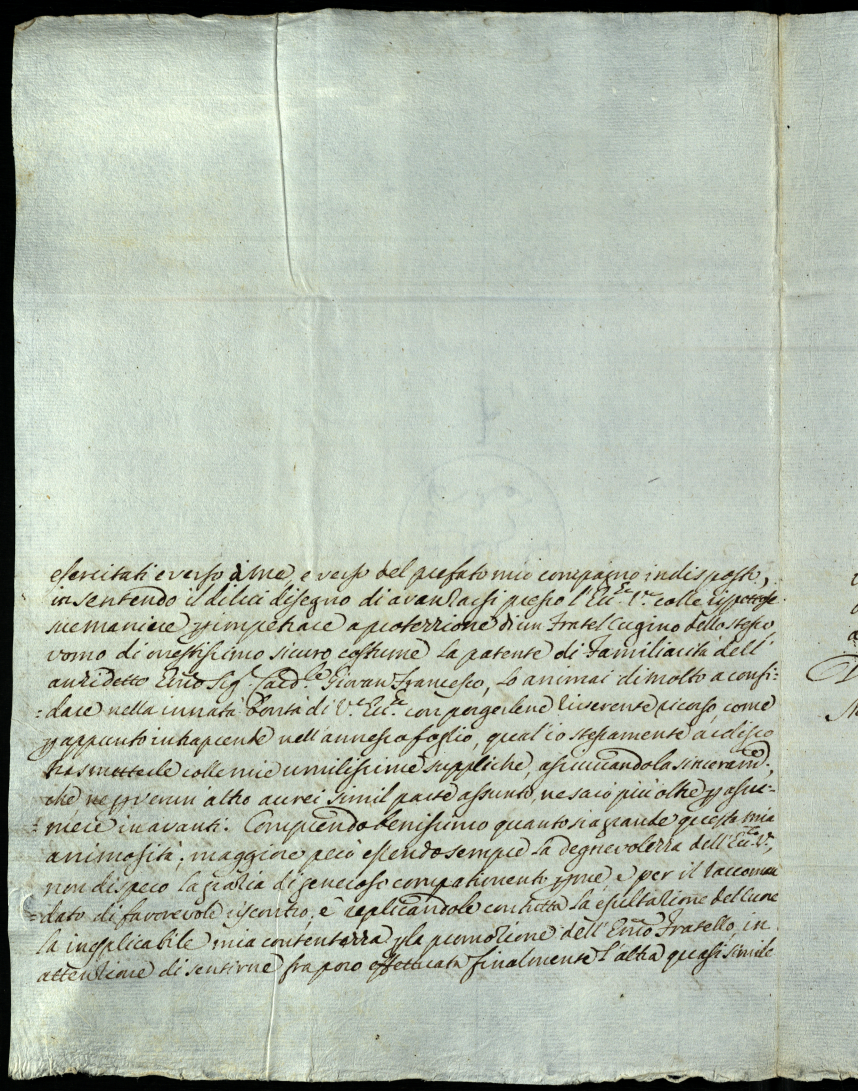 esercitati e verso di me, e verso del prefato mio compagno indisposto,
in sentendo il di lui disegno di avanzarsi presso l'Ecc.za V.ra colle rispettose
sue maniere p impetrare a protezzione di un Fratel Cugino dello stesso
uomo di onestissimo sicuro costume la patente di Familiarità dell'
anzidetto Emo Sig.r Card.le Giovan Francesco, lo animai di molto a confi-
=dare nella innata bontà di V.ra Ecc.za con porgerlene riverente ricorso, come
p appunto intraprende nell'annesso foglio, qual'io stessamente ardisco
trasmetterle colle mie umilissime suppliche, assicurandola sinceram.e,
che ne p verun altro avrei simil parte assunto, ne sarò più oltre p assu-
=mere in avanti. Comprendo benissimo quanto sia grande questa mia
animosità; maggiore però essendo sempre la degnevolezza dell'Ecc.za V.ra,
non dispero la grazia di generoso compatimento p me, e per il raccoman
=dato di favorevole riscontro; e replicandole con tutta la esultazione del cuore
la inesplicabile mia contentezza p la promozione dell'Emo Fratello, in
attenzione di sentirne fra poco effettuata finalmente l'altra quasi simile